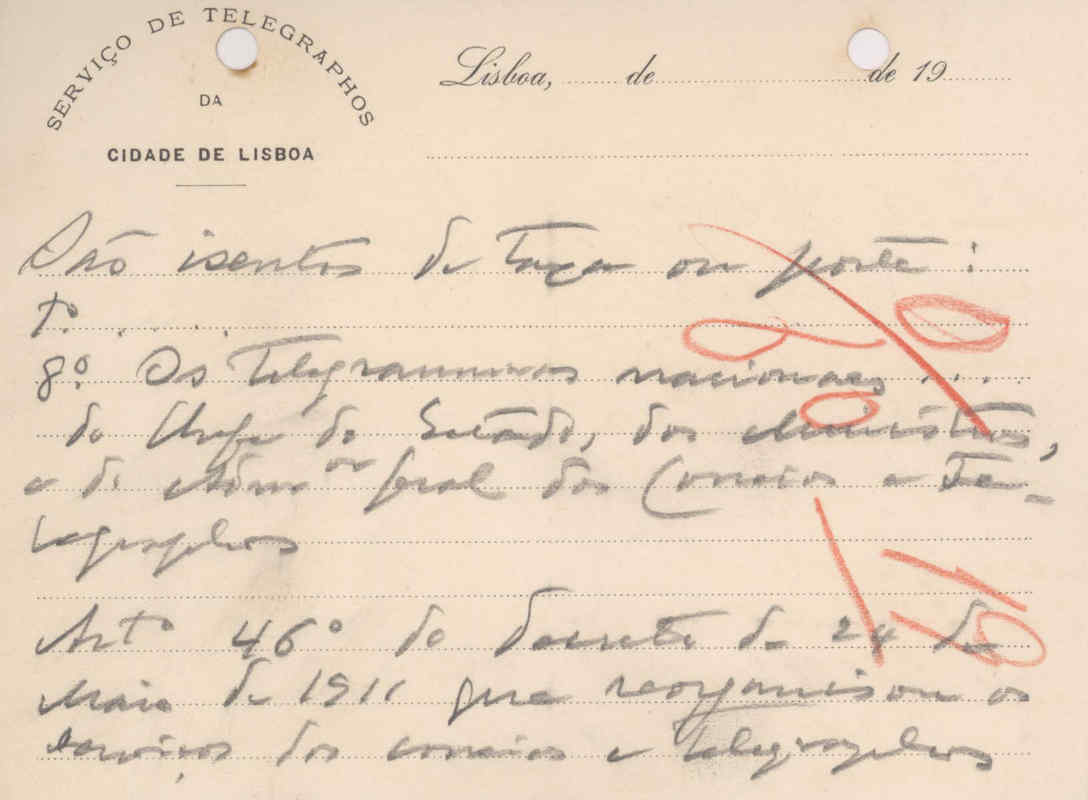 SERVIÇO DE TELEGRAPHOS
DA
CIDADE DE LISBOA
Lisboa, de de 19
São isentos de taxa ou porte:
1º. . . . .
8º. Os telegrammas nacionaes ....
do Chefe do Estado, dos Ministros,
e do Admor geral dos Correios e Te-
legraphos
Artº 46º do Decreto de 24 de
Maio de 1911 que reorganisou os
serviços dos correios e telegraphos